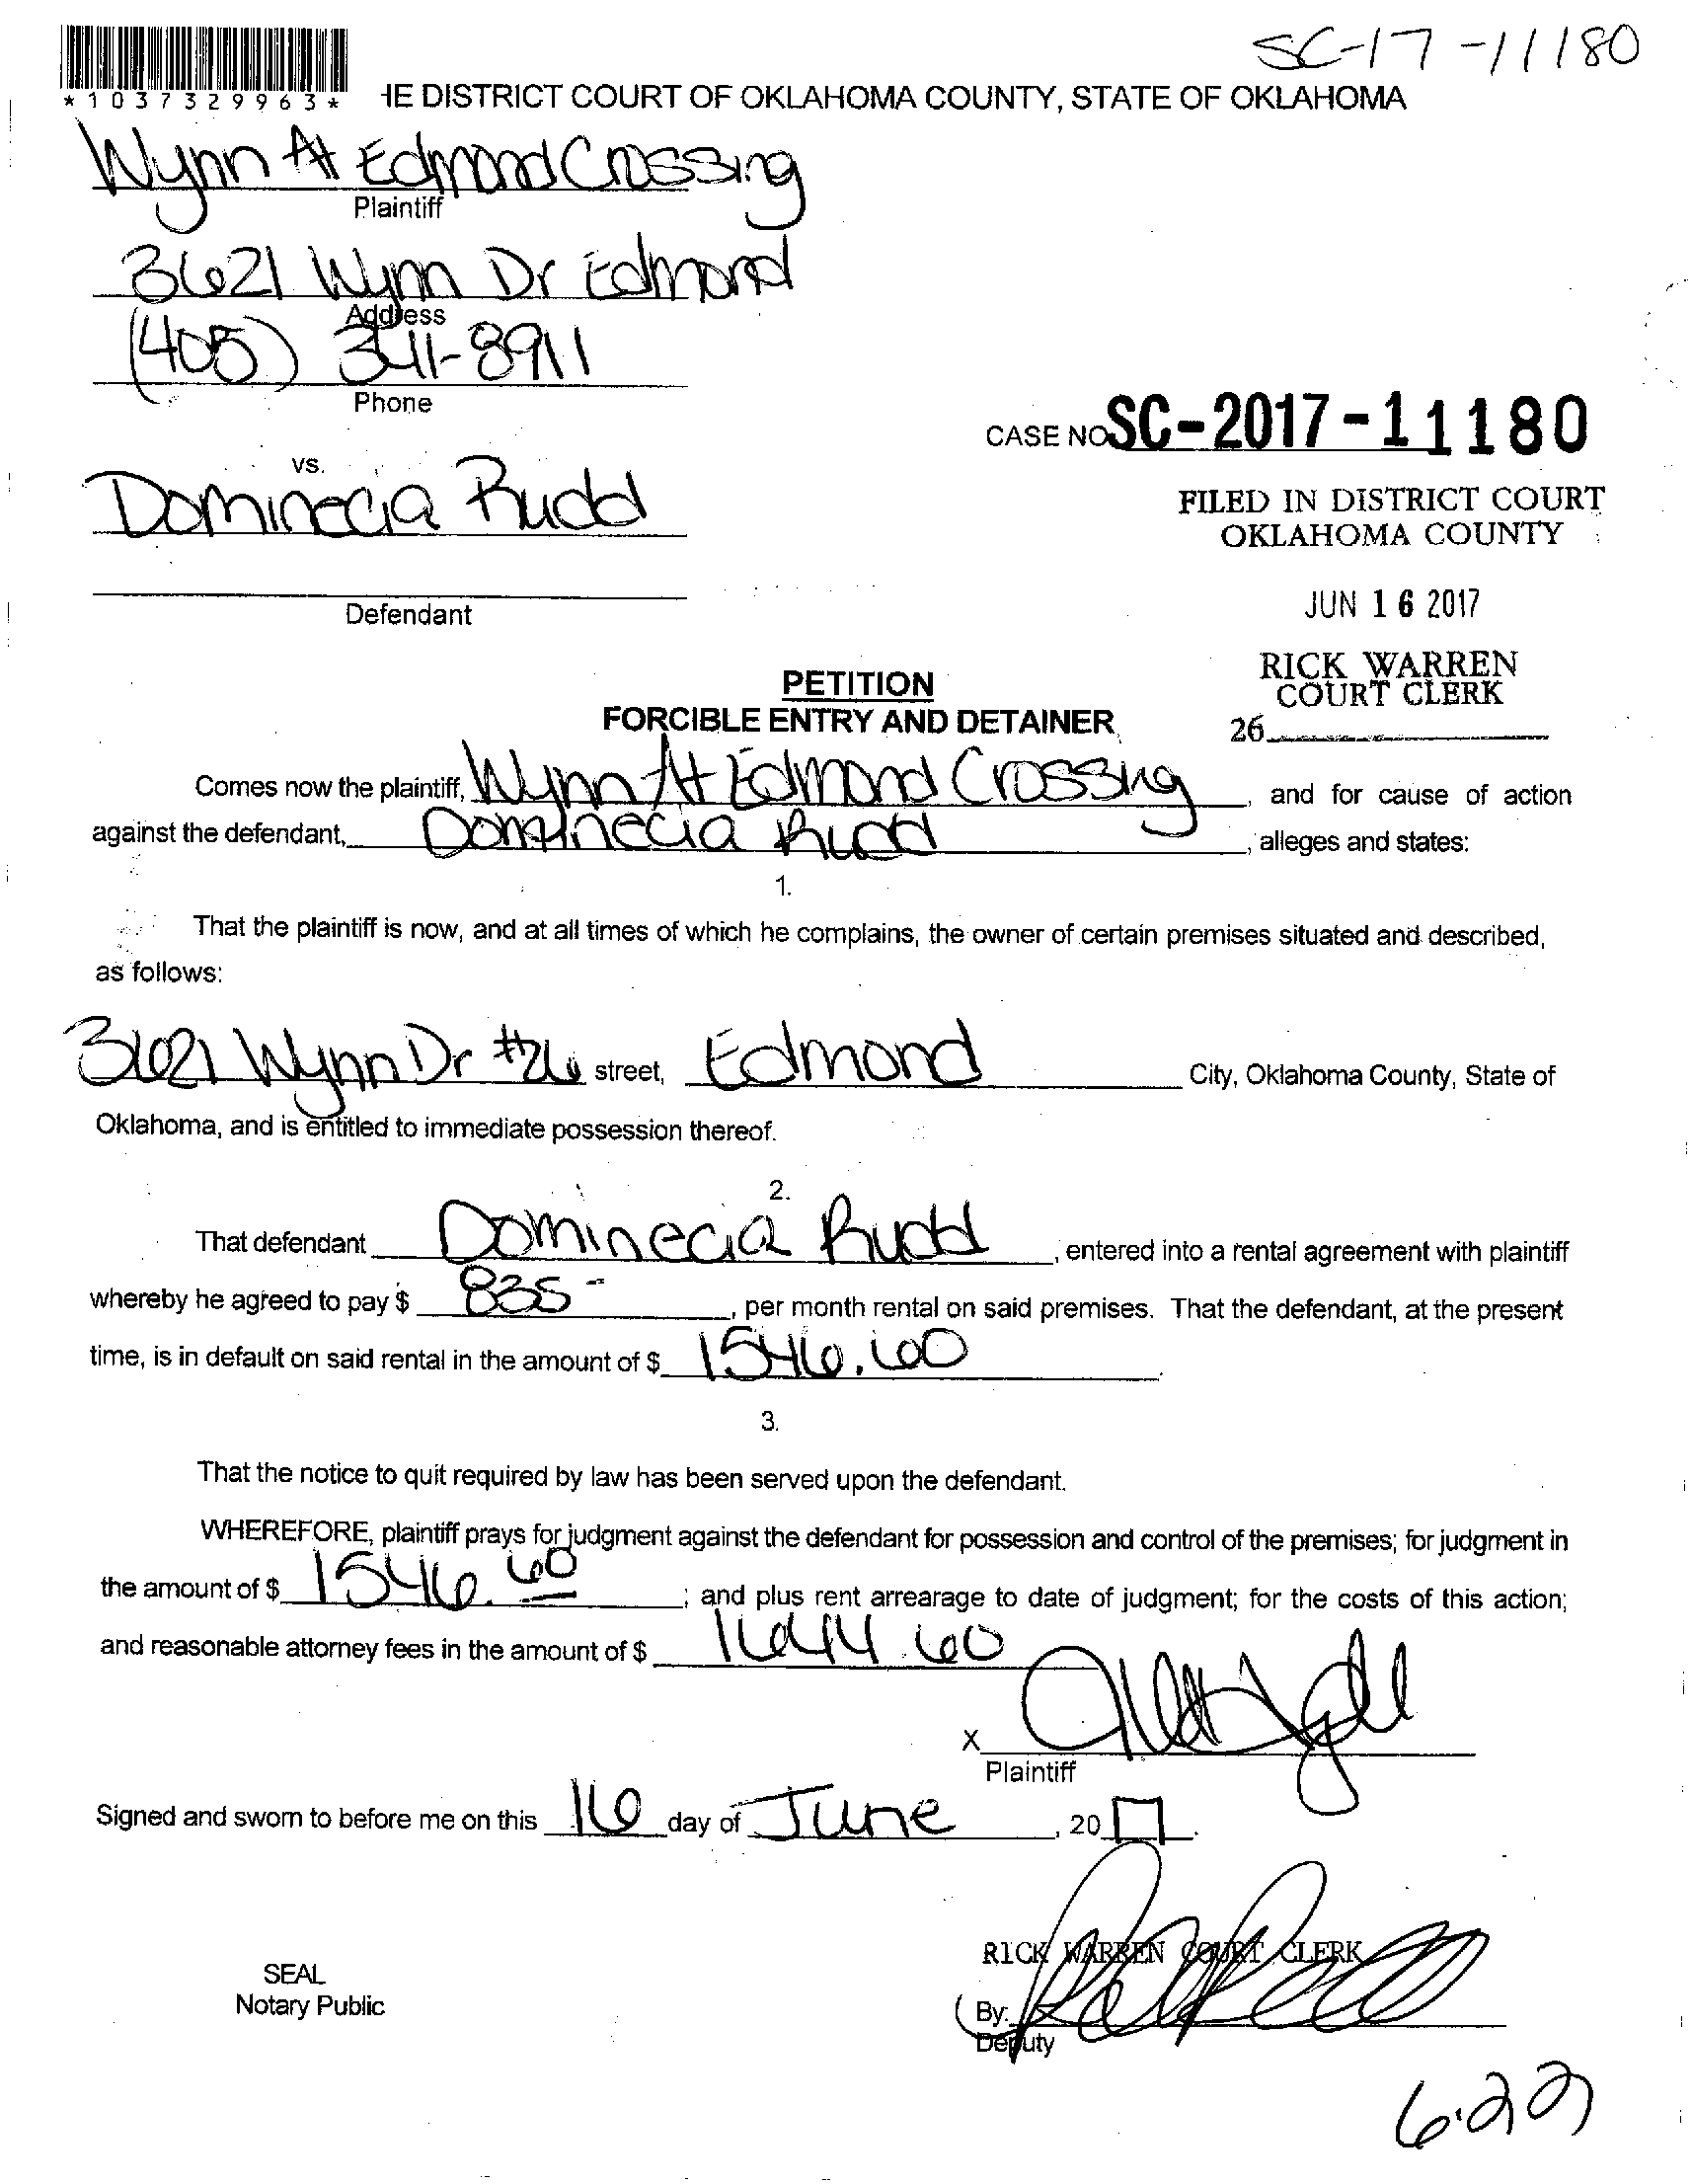 SC-17-11180
*1037329963*
HE DISTRICT COURT OF OKLAHOMA COUNTY, STATE OF OKLAHOMA
Wynn At Edmond Crossing
Plaintiff
3621 Wynn Dr Edmond
Address
(405) 341-8911
Phone
CASE NO. SC-2017-11180
vs.
Dominecia Rudd
FILED IN DISTRICT COURT
OKLAHOMA COUNTY
Defendant
JUN 16 2017
RICK WARREN
COURT CLERK
26
PETITION
FORCIBLE ENTRY AND DETAINER
Comes now the plaintiff, Wynn At Edmond Crossing, and for cause of action
against the defendant, Dominecia Rudd, alleges and states:
1.
That the plaintiff is now, and at all times of which he complains, the owner of certain premises situated and described,
as follows:
3621 Wynn Dr #26 street, Edmond City, Oklahoma County, State of
Oklahoma, and is entitled to immediate possession thereof.
2.
That defendant Dominecia Rudd, entered into a rental agreement with plaintiff
whereby he agreed to pay $ 835-, per month rental on said premises. That the defendant, at the present
time, is in default on said rental in the amount of $ 1546.60.
3.
That the notice to quit required by law has been served upon the defendant.
WHEREFORE, plaintiff prays for judgment against the defendant for possession and control of the premises; for judgment in
the amount of $ 1546.60; and plus rent arrearage to date of judgment; for the costs of this action;
and reasonable attorney fees in the amount of $ 1644.60
X
Plaintiff
Signed and sworn to before me on this 16 day of June, 2017.
RICK WARREN COURT CLERK
SEAL
Notary Public
By:
Deputy
6.22